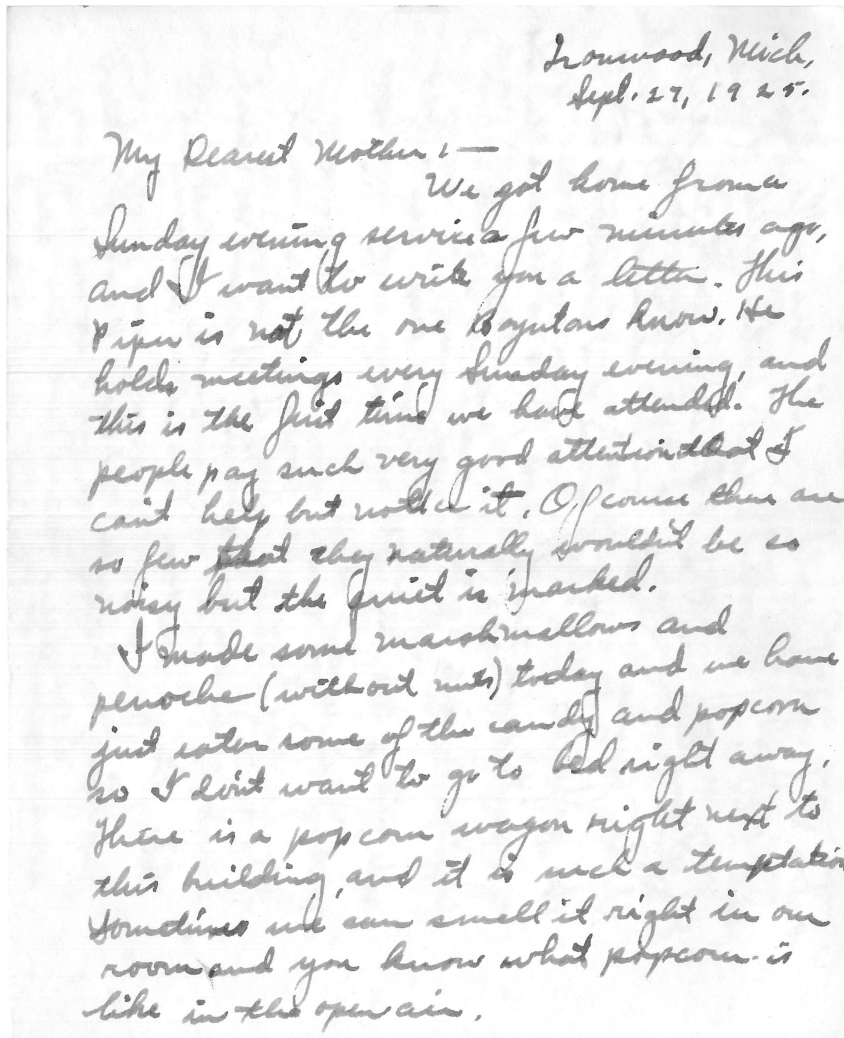 Ironwood, Mich,
Sept. 27, 1925.
My Dearest Mother:—
We got home from a
Sunday evening service a few minutes ago,
and I want to write you a letter. This
Piper is not the one Boyntons know. He
holds meetings every Sunday evening, and
this is the first time we have attended. The
people pay such very good attention that I
can't help but notice it. Of course there are
so few that they naturally wouldn't be so
noisy but the quiet is marked.
I made some marshmallows and
penoche (without nuts) today and we have
just eaten some of the candy and popcorn
so I don't want to go to bed right away.
There is a popcorn wagon right next to
this building, and it is such a temptation
Sometimes we can smell it right in our
room and you know what popcorn is
like in the open air.